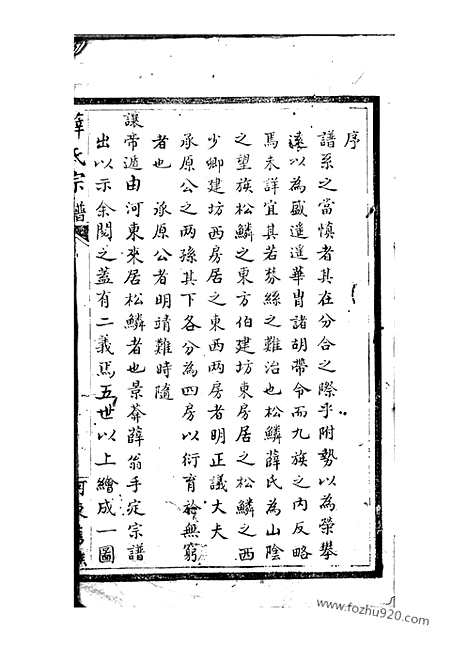 序
譜系之當慎者其在分合之際乎附勢以為榮攀
遠以為盛遥遥華胄諸胡帶令而九族之内反略
焉未詳宜其若棼絲之難治也松鱗薛氏為山陰
之望族松鱗之東方伯建坊東房居之松鱗之西
少卿建坊西房居之東西兩房者明正議大夫
承原公之两孫其下各分為四房以衍育於無窮
者也 承原公者明靖難時隨
讓帝遁由河東來居松鱗者也景莽薛翁手定宗譜
出以示余閱之蓋有二義焉五世以上繪成一圖
薛氏宗譜
www.fozhu920.com